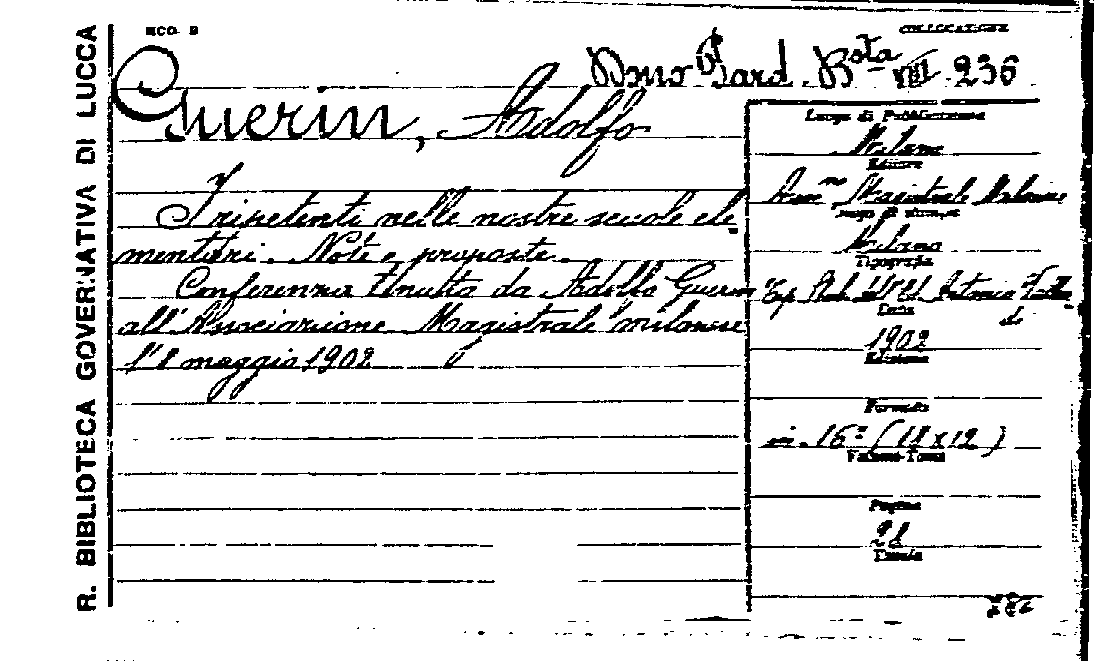 R. BIBLIOTECA GOVERNATIVA DI LUCCA
MOD. B
COLLOCAZIONE
Dono Pard. Bsta VIII 236
Guerin, Adolfo
I ripetenti nelle nostre scuole ele
mentari. Note e proposte.
Conferenza tenuta da Adolfo Guerin
all'Associazione Magistrale milanese
l'8 maggio 1902
Luogo di Pubblicazione
Milano
Editore
Assne Magistrale Milanese
Luogo di stampa
Milano
Tipografia
Tip. del di Antonio
Data
1902
Edizione
Formato
in. 16º (18 x 12)
Volume-Tomo
Pagine
Tavole